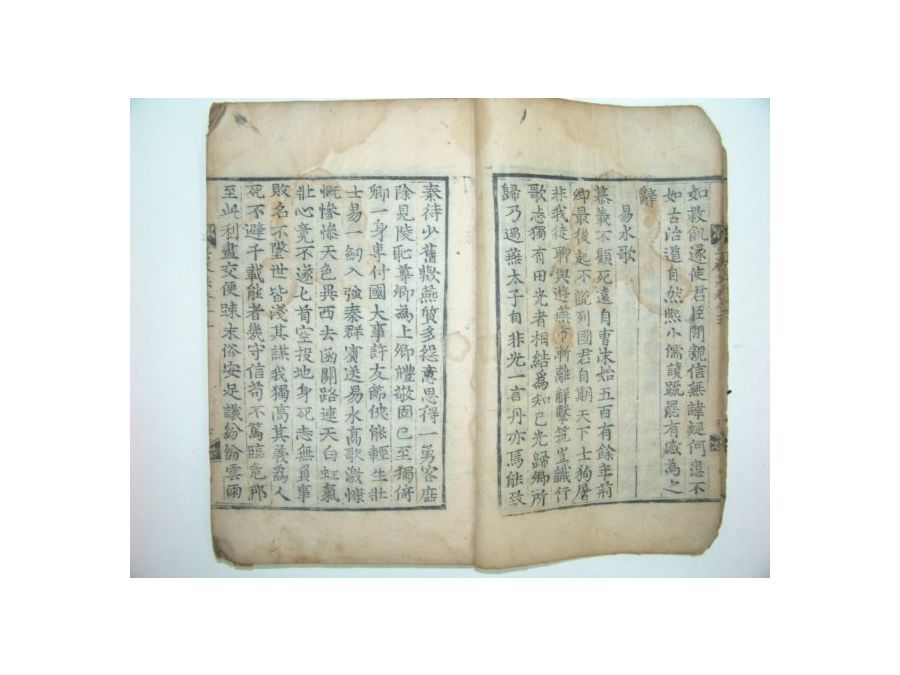 如救飢遂使君臣間親信無諱疑何患不
如古治道自然熙小儒讀疏罷有感為之
辭
易水歌
慕義不顧死遠自曹沫始五百有餘年荊
卿最後起不說列國君自期天下士狗屠
非我徒聊與遊燕市漸離解擊筑豈識行
歌志獨有田光者相結爲知己光歸卿所
歸乃遇燕太子自非光一言丹亦焉能致
秦待少舊歡燕質多怨意思得一勇客庶
除見陵恥尊卿為上卿禮敬固已至獨循
卿一身專付國大事許友節俠能輕生壯
士易一劒入強秦群賓送易水高歌激慷
慨慘慘天色異西去函關路連天白虹氣
壯心竟不遂匕首空投地身死志無負事
敗名不墜世皆淺其謀我獨高其義為人
死不避千載能者幾守信苟不篤臨危那
至此利盡交便踈末俗安足議紛紛雲雨